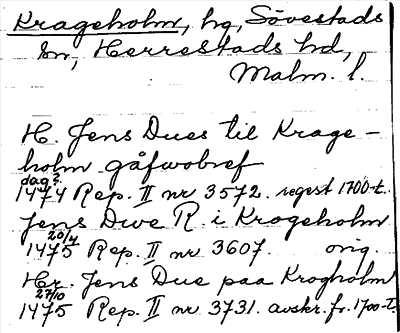 Krageholm, hg, Sövestads
sn, Herrestads hd,
Malm. l.
H. Jens Dues til Krage-
holm gåfwobref
dag?
1474 Rep. II nr 3572. regest 1700-t.
Jens Dwe R. i Krogeholm
20/4
1475 Rep. II nr 3607. orig.
Hr. Jens Due paa Krogholm
27/10
1475 Rep. II nr 3731. avskr. fr. 1700-t.